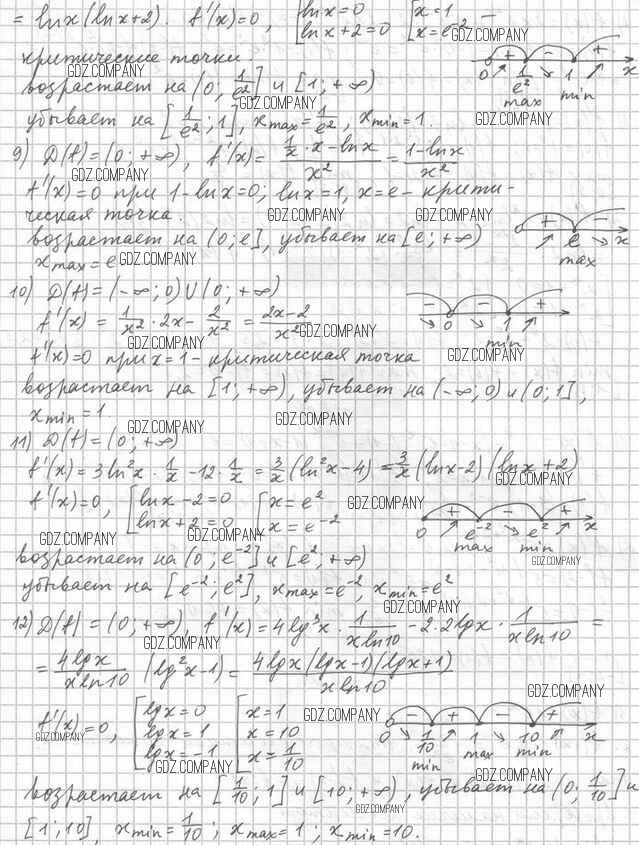 = ln x (ln x + 2). f'(x) = 0, [ln x = 0 [x = 1
ln x + 2 = 0 x = e⁻² –
GDZ.COMPANY
+ – +
0 ↗ 1/e² ↘ 1 ↗ x
max min
критические точки.
GDZ.COMPANY
возрастает на (0; 1/e²] и [1; +∞)
GDZ.COMPANY
убывает на [1/e²; 1], x max = 1/e², x min = 1.
GDZ.COMPANY
9) D(f) = (0; +∞), f'(x) = (1/x · x – ln x)/x² = (1 – ln x)/x²
GDZ.COMPANY
f'(x) = 0 при 1 – ln x = 0; ln x = 1, x = e – крити-
ческая точка.
GDZ.COMPANY GDZ.COMPANY
+ –
↗ e ↘ x
max
возрастает на (0; e], убывает на [e; +∞)
x max = e
GDZ.COMPANY
10) D(f) = (–∞; 0) ∪ (0; +∞)
– – +
↘ 0 ↘ 1 ↗
min
f'(x) = 1/x² · 2x – 2/x² = (2x – 2)/x²
GDZ.COMPANY GDZ.COMPANY
f'(x) = 0 при x = 1 – критическая точка
GDZ.COMPANY
возрастает на [1; +∞), убывает на (–∞; 0) и (0; 1],
x min = 1
GDZ.COMPANY GDZ.COMPANY
11) D(f) = (0; +∞)
f'(x) = 3 ln² x · 1/x – 12 · 1/x = 3/x (ln² x – 4) = 3/x (ln x – 2)(ln x + 2)
GDZ.COMPANY
f'(x) = 0, [ln x – 2 = 0 [x = e²
ln x + 2 = 0 x = e⁻²
GDZ.COMPANY
+ – +
0 ↗ e⁻² ↘ e² ↗ x
max min
GDZ.COMPANY GDZ.COMPANY
GDZ.COMPANY
возрастает на (0; e⁻²] и [e²; +∞)
убывает на [e⁻²; e²], x max = e⁻², x min = e²
GDZ.COMPANY
12) D(f) = (0; +∞), f'(x) = 4 lg³ x · 1/(x ln 10) – 2 · 2 lg x · 1/(x ln 10) =
GDZ.COMPANY
= (4 lg x)/(x ln 10) (lg² x – 1) = (4 lg x (lg x – 1)(lg x + 1))/(x ln 10)
GDZ.COMPANY
f'(x) = 0, [lg x = 0 [x = 1
lg x = 1 x = 10
lg x = –1 x = 1/10
GDZ.COMPANY GDZ.COMPANY
GDZ.COMPANY
– + – +
0 ↘ 1/10 ↗ 1 ↘ 10 ↗ x
min max min
GDZ.COMPANY
возрастает на [1/10; 1] и [10; +∞), убывает на (0; 1/10] и
GDZ.COMPANY
[1; 10], x min = 1/10; x max = 1; x min = 10.